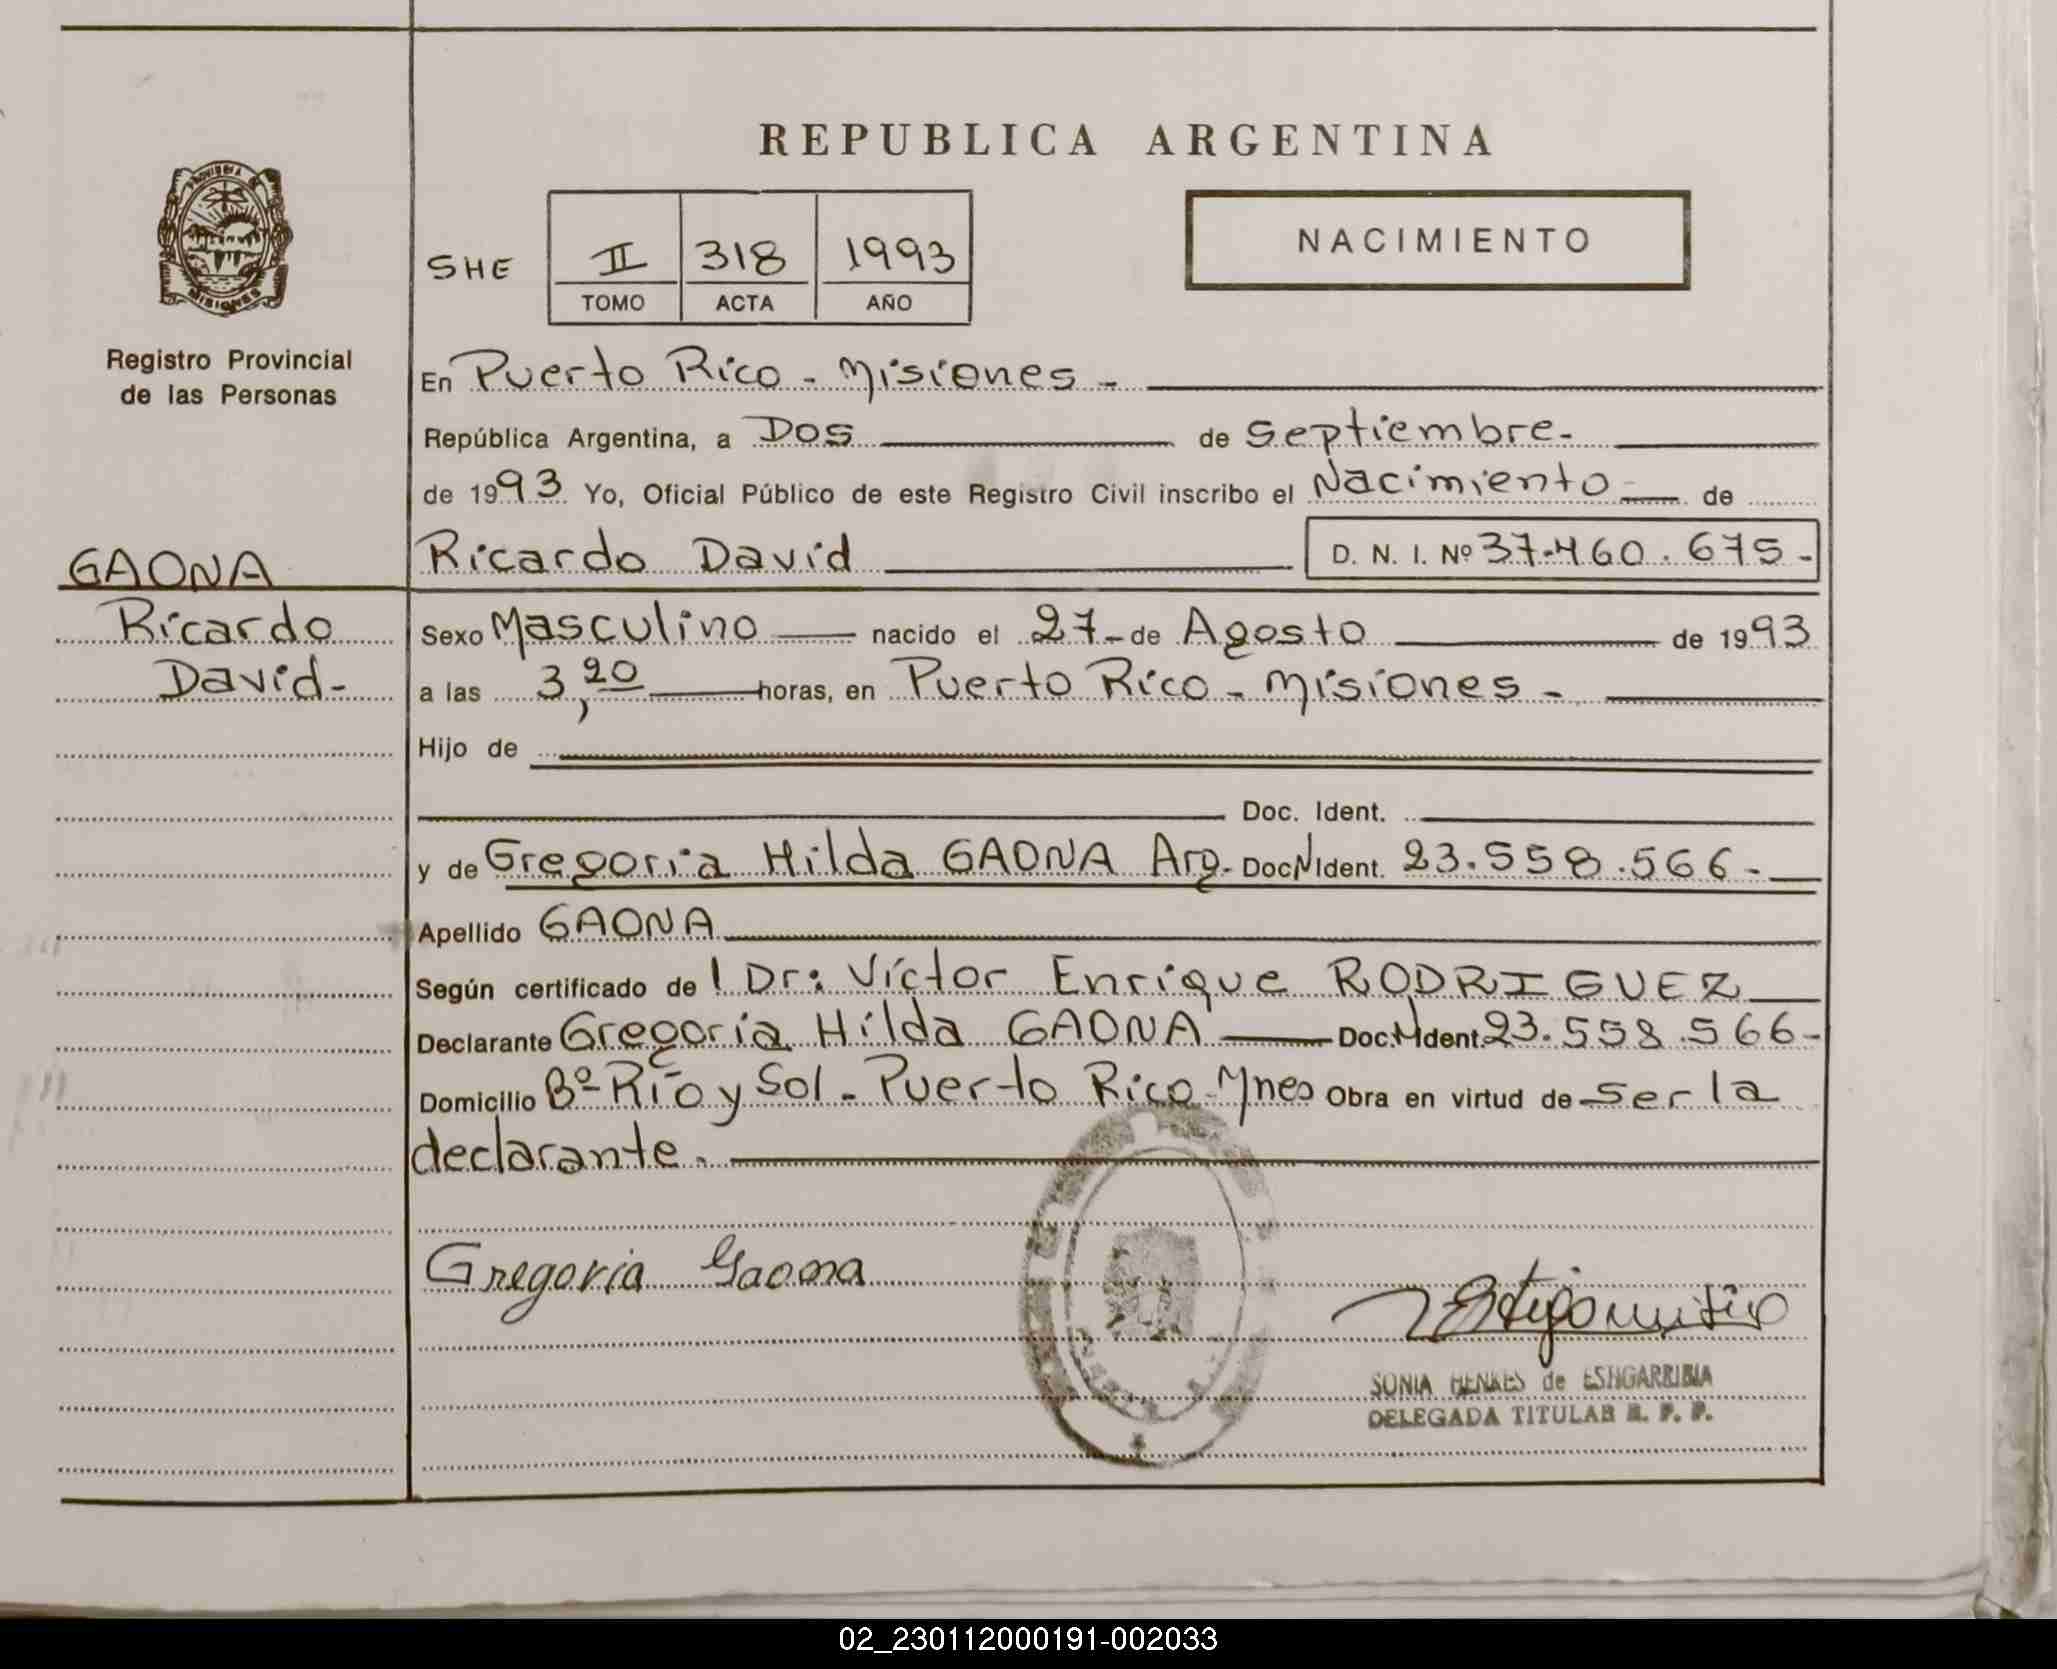 REPUBLICA ARGENTINA
PROVINCIA DE MISIONES
Registro Provincial
de las Personas
SHE II 318 1993
TOMO ACTA AÑO
NACIMIENTO
En Puerto Rico - Misiones -
República Argentina, a Dos de Septiembre.
de 1993 Yo, Oficial Público de este Registro Civil inscribo el Nacimiento de
GAONA
Ricardo
David-
Ricardo David D. N. I. Nº 37.460.675-
Sexo Masculino nacido el 27- de Agosto de 1993
a las 3,20 horas, en Puerto Rico - Misiones -
Hijo de
Doc. Ident.
y de Gregoria Hilda GAONA Arg. Doc N Ident. 23.558.566-
Apellido GAONA
Según certificado de l Dr: Víctor Enrique RODRIGUEZ
Declarante Gregoria Hilda GAONA Doc. N Ident. 23.558.566-
Domicilio Bº Río y Sol - Puerto Rico - Mnes Obra en virtud de ser la
declarante.
Gregoria Gaona
SONIA HENKES de ESTIGARRIBIA
DELEGADA TITULAR R. P. P.
02_230112000191-002033